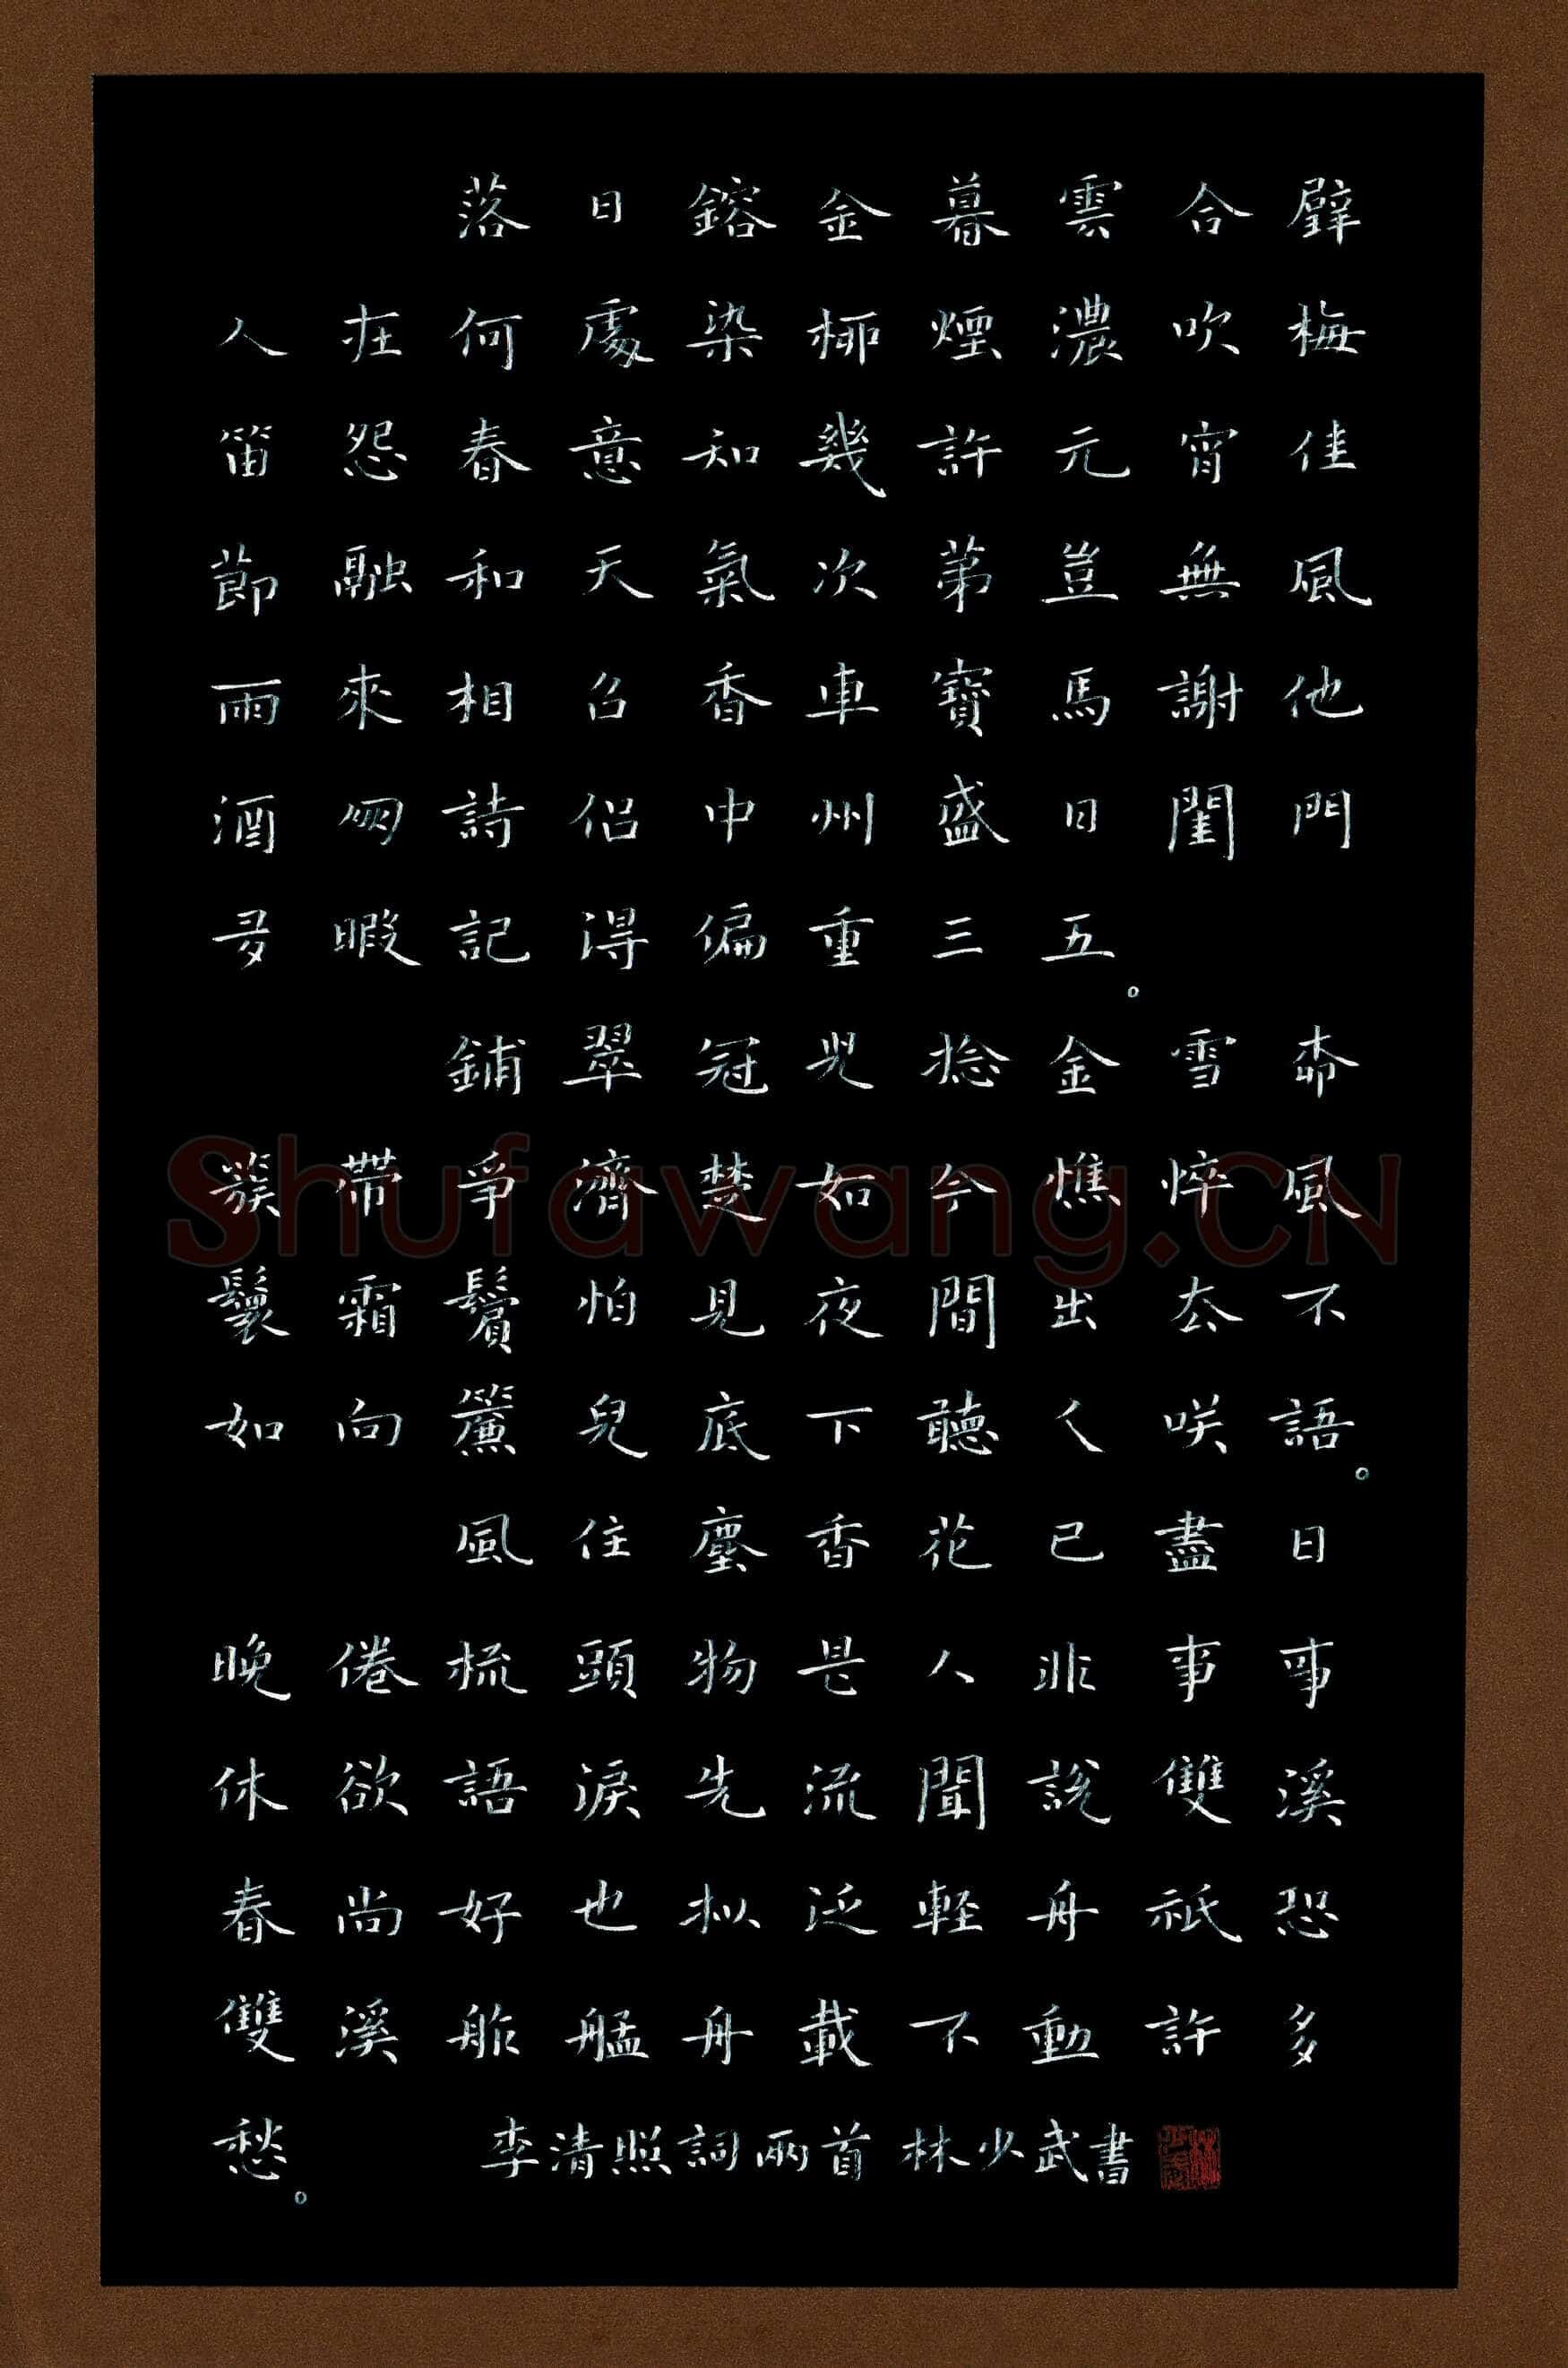 落日鎔金暮雲合璧
人在何處染柳煙濃吹梅
笛怨春意知幾許元宵佳
節融和天氣次第豈無風
雨來相召香車寶馬謝他
酒朋詩侶中州盛日閨門
多暇記得偏重三五。
鋪翠冠兒捻金雪柳
簇帶爭濟楚如今憔悴風
鬟霜鬢怕見夜間出去不
如向簾兒底下聽人咲語。
風住塵香花已盡日
晚倦梳頭物是人非事事
休欲語淚先流聞說雙溪
春尚好也拟泛軽舟祇恐
雙溪舴艋舟載不動許多
愁。 李清照詞兩首 林少武書
Shufawang.CN